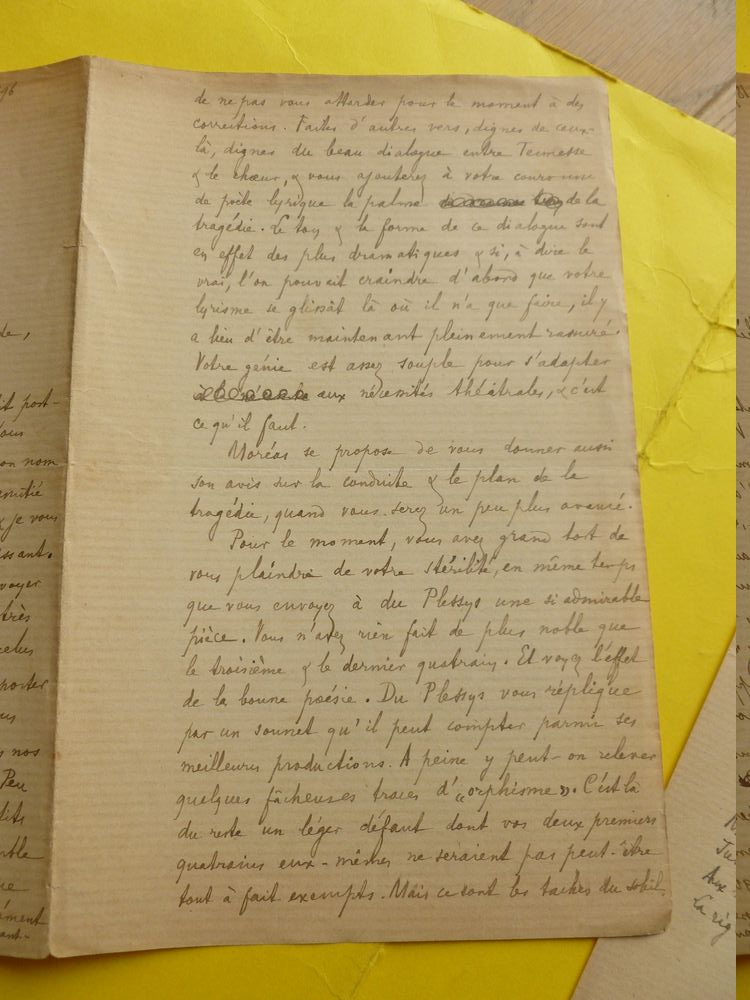 96
de ne pas vous attarder pour le moment à des
corrections. Faites d'autres vers, dignes de ceux-
là, dignes du beau dialogue entre Tecmesse
& le chœur, & vous ajouterez à votre couronne
de poète lyrique la palme de la
tragédie. Le ton & la forme de ce dialogue sont
en effet des plus dramatiques & si, à dire le
vrai, l'on pouvait craindre d'abord que votre
lyrisme se glissât là où il n'a que faire, il y
a lieu d'être maintenant pleinement rassuré.
Votre génie est assez souple pour s'adapter
aux nécessités théâtrales, & c'est
ce qu'il faut.
Moréas se propose de vous donner aussi
son avis sur la conduite & le plan de la
tragédie, quand vous serez un peu plus avancé.
Pour le moment, vous avez grand tort de
vous plaindre de votre stérilité, en même temps
que vous envoyez à du Plessys une si admirable
pièce. Vous n'avez rien fait de plus noble que
le troisième & le dernier quatrain. Et voyez l'effet
de la bonne poésie. Du Plessys vous réplique
par un sonnet qu'il peut compter parmi ses
meilleures productions. A peine y peut-on relever
quelques fâcheuses traces d'"orphisme". C'est là
du reste un léger défaut dont vos deux premiers
quatrains eux-mêmes ne seraient pas peut-être
tout à fait exempts. Mais ce sont les taches du soleil.
de,
it post-
ous
on nom
& je vous
issant.
voyer
très
porter
us
s nos
Peu
ble
ément
ant-